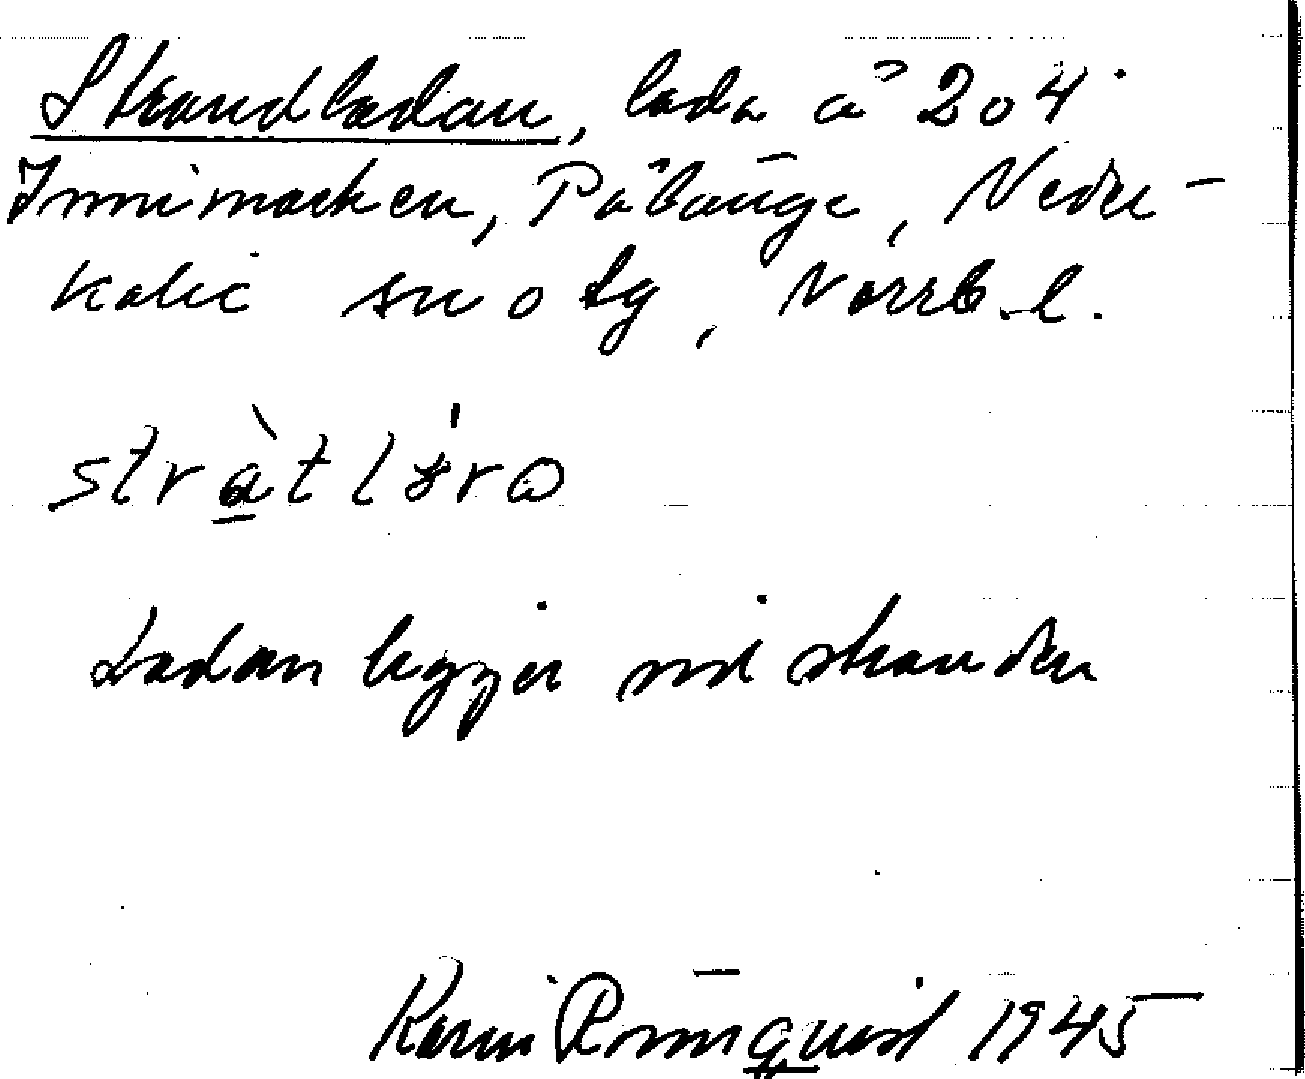 Strandladan, lada å 204
Innimarken, Pålänge, Neder-
kalix sn o tg, Norrb. l.
stràtl
Ladan ligger vid stranden
Karin Rönnquist 1945